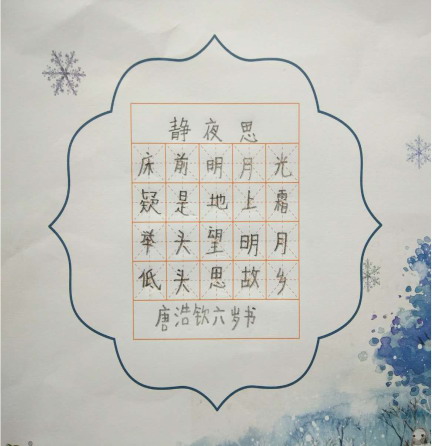 静夜思
床前明月光
疑是地上霜
举头望明月
低头思故乡
唐浩钦六岁书